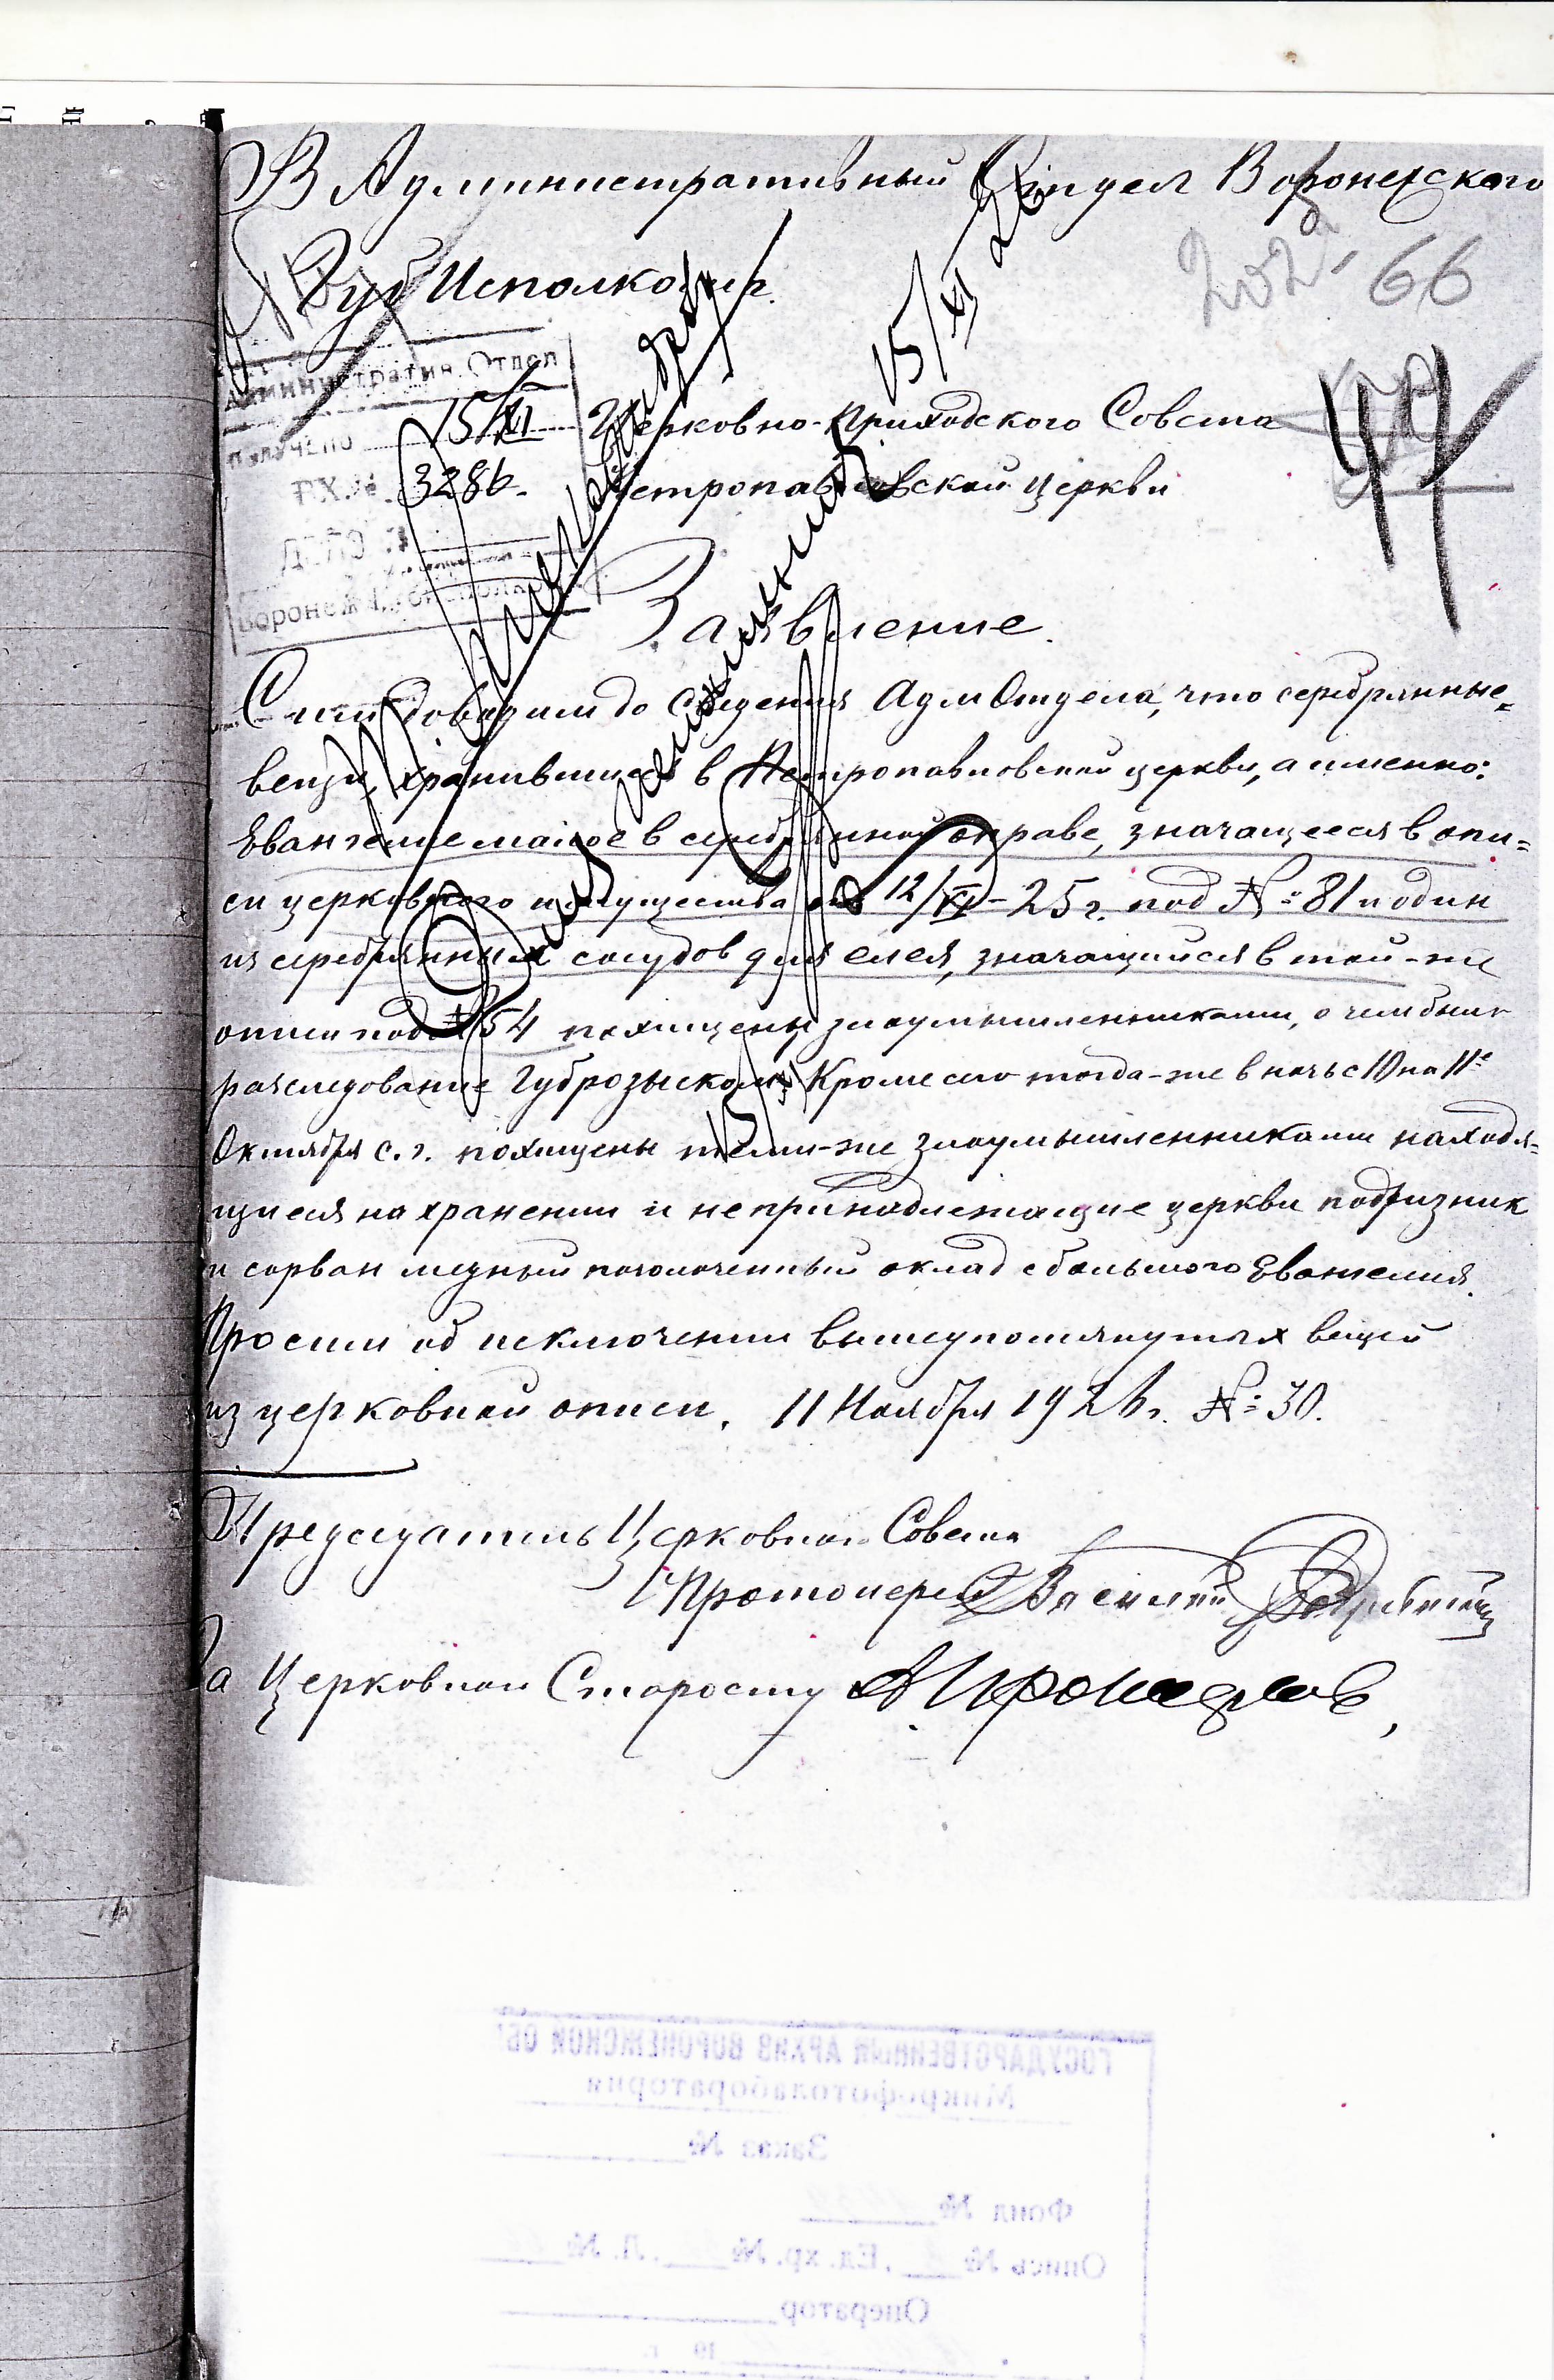 В Административный Отдел Воронежского
ГубИсполкома.
202, 66
Административн. Отдел
Получено 15/XI
ВХ. № 3286.
ДЕЛО №
Воронеж. Губисполком
Церковно-Приходского Совета
Петропавловской церкви
44
15/XI 26
Заявление.
Сим доводим до сведения АдмОтдела, что серебрянные
вещи, хранившиеся в Петропавловской церкви, а именно:
Евангелие малое в серебрянной оправе, значащееся в опи-
си церковного имущества от 12/XI-25 г. под №: 81 и один
из серебрянных сосудов для елея, значащийся в той-же
описи под № 54 похищены злоумышленниками, о чем
разследование Губрозыском. Кроме сего тогда-же в ночь с 10 на 11е
Октября с. г. похищены теми-же злоумышленниками находя-
щиеся на хранении и непринадлежащие церкви подризник
и сорван медный позолоченный оклад с большого Евангелия.
Просим об исключении вышеупомянутых вещей
из церковной описи. 11 Ноября 1926 г. №: 30.
Председатель Церковного Совета
Протоиерей Василий
За Церковного Старосту
ГОСУДАРСТВЕННЫЙ АРХИВ ВОРОНЕЖСКОЙ ОБ
Микрофотолаборатория
Заказ №
Фонд №
Опись № . Ед. хр. № . Л. №
Оператор
19 г.